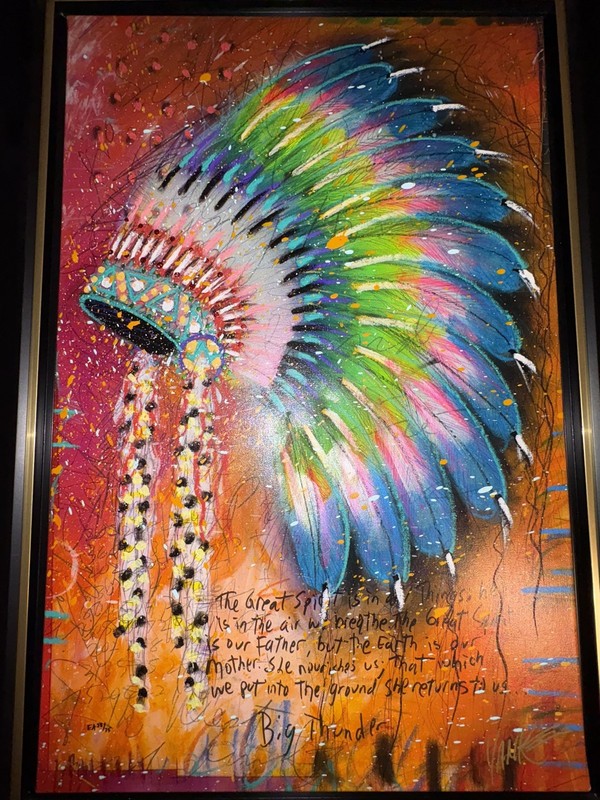 The Great Spirit is in all Things, he
is in the air we breathe. the Great Spirit
is our Father, but the Earth is our
Mother. She nourishes us; That which
we put into The ground she returns to us
Big Thunder